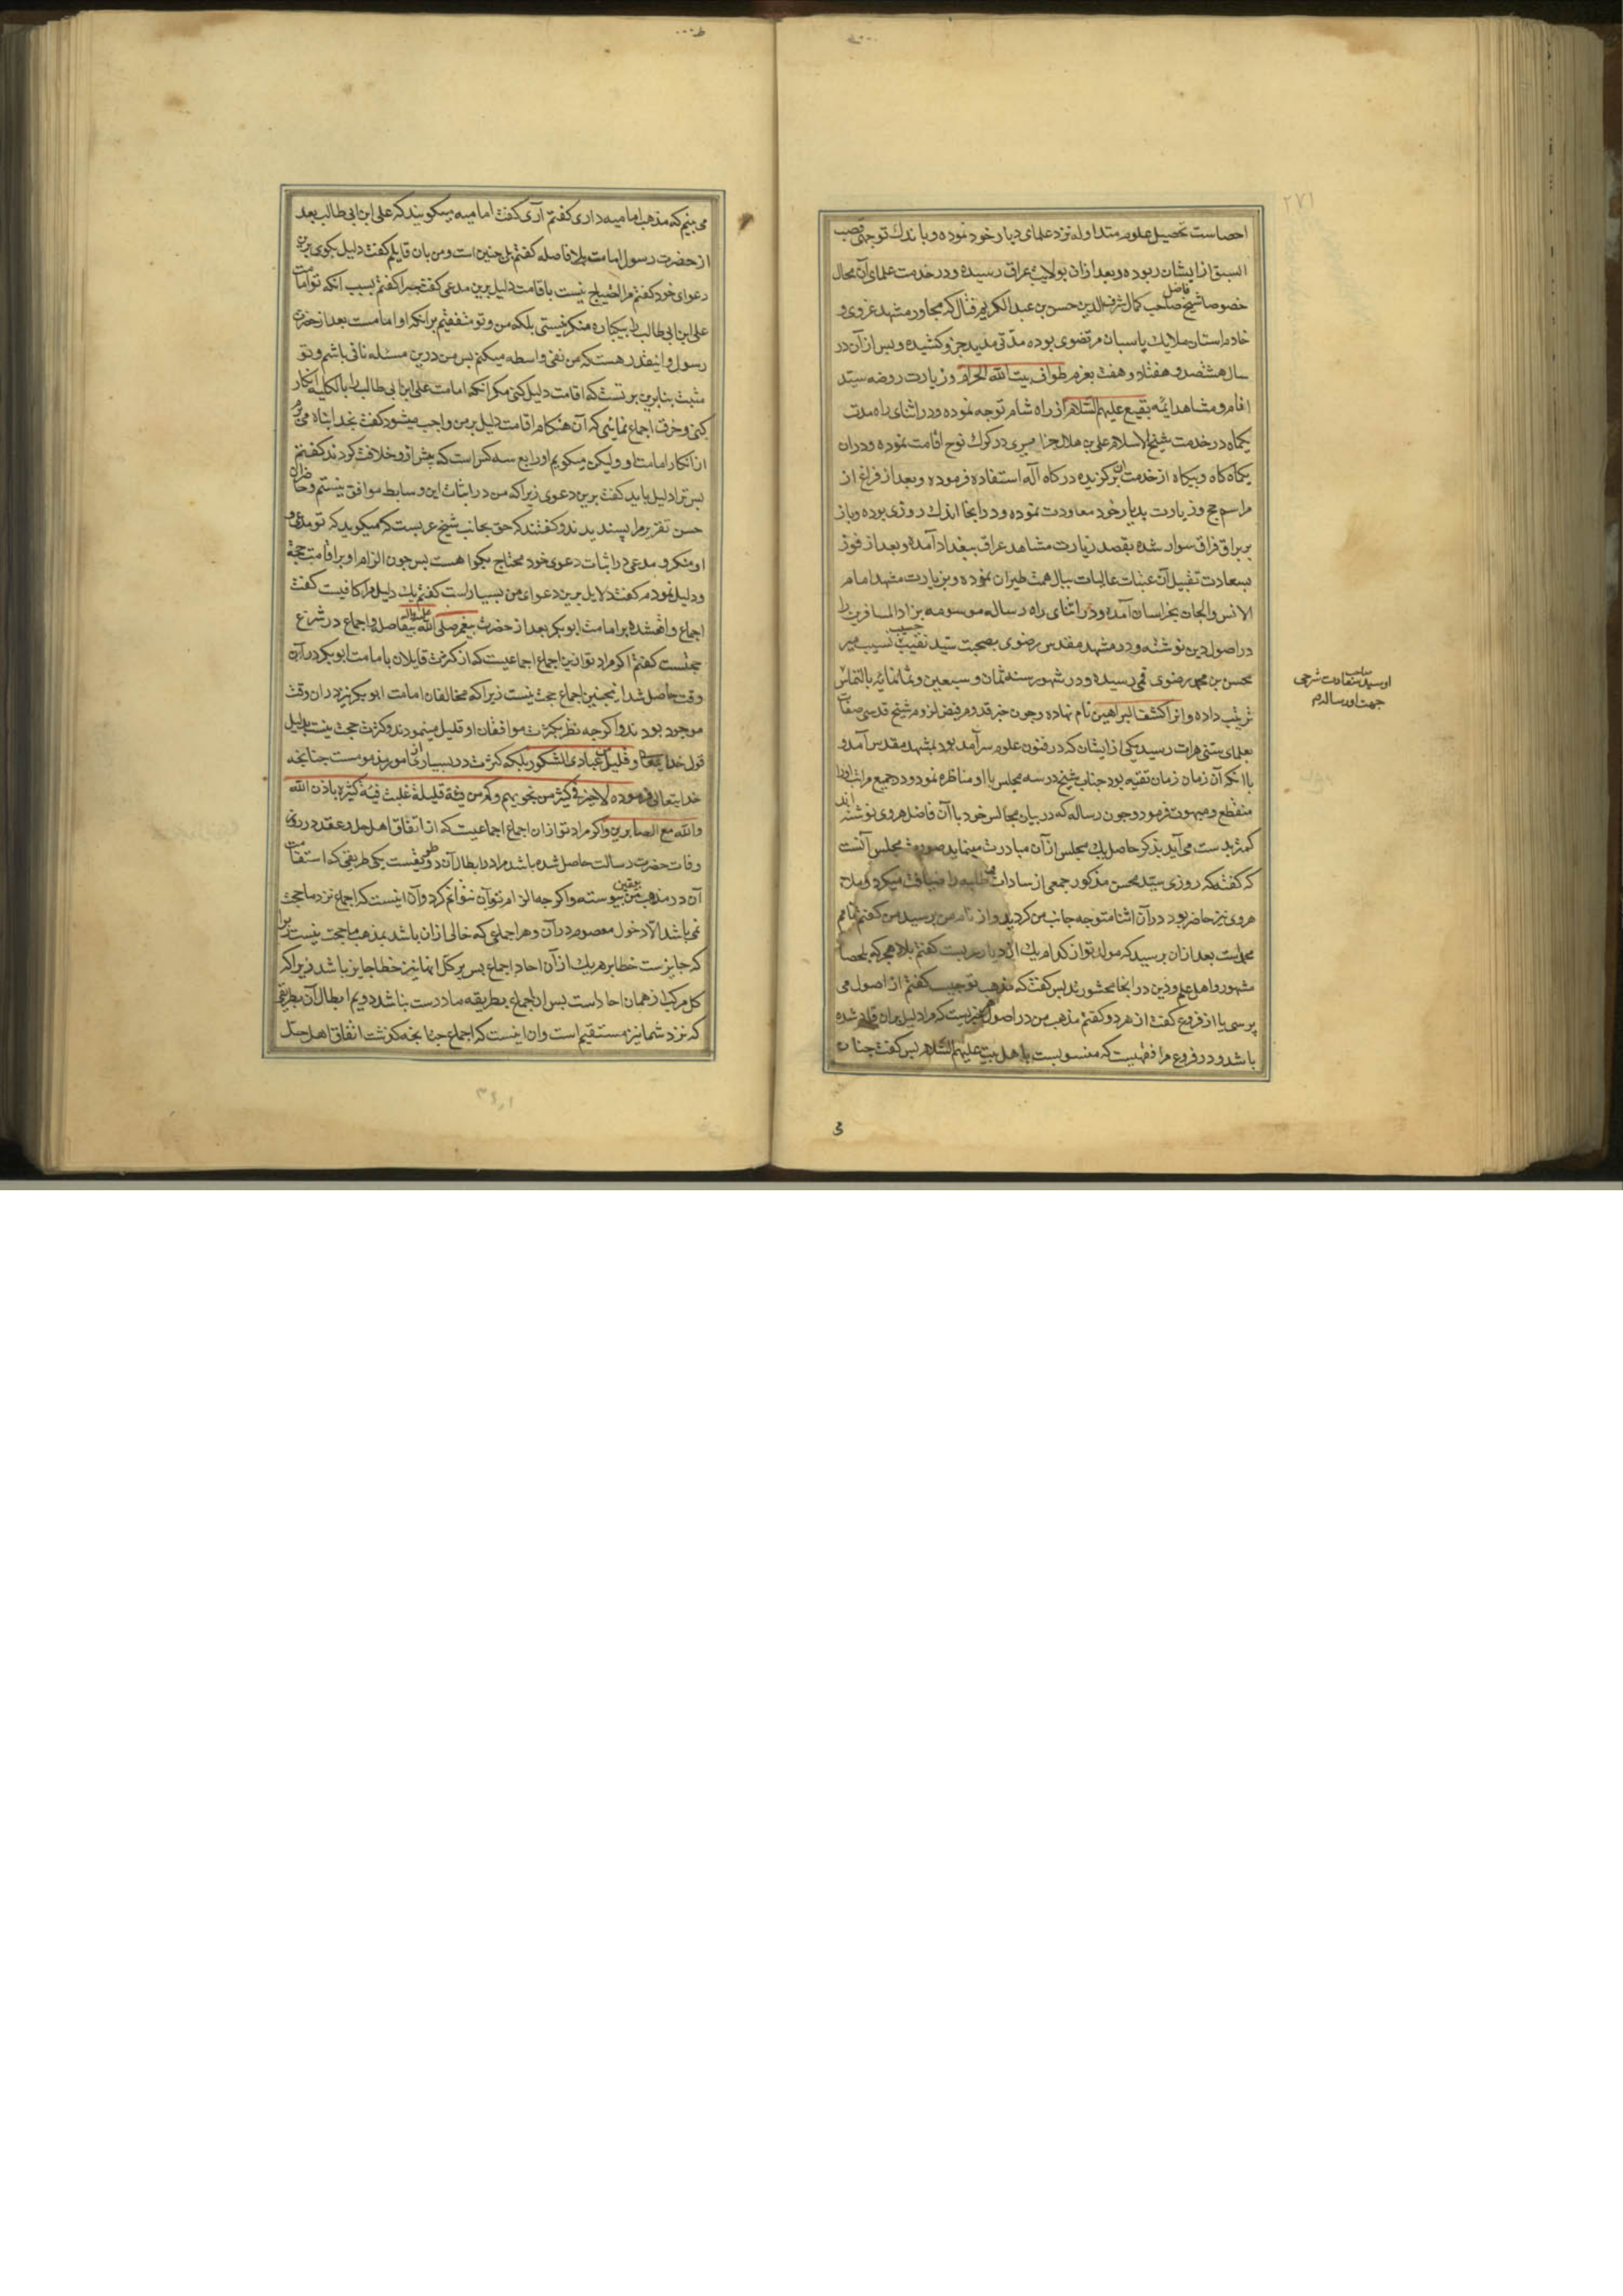 ٢٧١
احصاست تحصیل علوم متداوله نزد علمای دیار خود نموده و باندک توجهی قصب
السبق از ایشان ربوده و بعد از ان بولایت عراق رسیده و در خدمت علمای آن محال
خصوصا شیخ فاضل صاحب کمال شرف الدین حسن بن عبد الکریم فتال که مجاور مشهد غروی و
خادم استان ملایک پاسبان مرتضوی بوده مدتی مدید جز و کشیده و پس از آن در
سال هشتصد و هفتاد و هفت بعزم طواف بیت الله الحرام و زیارت روضه سید
انام و مشاهد ایمه بقیع علیهم السلام از راه شام توجه نموده و در اثنای راه مدت
یکماه در خدمت شیخ الاسلام علی بن هلال جزایری در کرک نوح اقامت نموده و در ان
یکماه کاه و بیکاه از خدمت ان برکزیده درکاه آله استفاده فرموده و بعد از فراغ از
مراسم حج و زیارت بدیار خود معاودت نموده و در انجا اندک روزی بوده و باز
بر براق فراق سوار شده بقصد زیارت مشاهد عراق ببغداد آمده و بعد از فوز
بسعادت تقبیل آن عتبات عالیات ببال همت طیران نموده و بزیارت مشهد امام
الانس والجان بخراسان آمده و در اثنای راه رساله موسومه بزاد المسافرین را
در اصول دین نوشته و در مشهد مقدس رضوی بصحبت سید نقیب حسیب نسیب میر
محسن بن محمد رضوی قمی رسیده و در شهور سنه ثمان و سبعین و ثمانمائه بالتماس
ترتیب داده و انرا کشف البراهین نام نهاده و چون خبر قدوم فیض لزوم شیخ قدسی صفات
بعلمای سنی هرات رسید یکی از ایشان که در فنون علوم سرآمد بود بمشهد مقدس آمد و
با انکه آن زمان زمان تقیه بود جناب شیخ در سه مجلس با او مناظره نمود و در جمیع مراتب اورا
منقطع و مبهوت فرمود و چون رساله که در بیان مجالس خود با آن فاضل هروی نوشته اند
کمتر بدست می آید بذکر حاصل یک مجلس از آن مبادرت مینماید صورت مجلس آنست
که کفته که روزی سید محسن مذکور جمعی از سادات و طلبه را ضیافت میکرد و ملا
هروی نیز حاضر بود در آن اثنا متوجه جانب من کردید و از نام من پرسید من کفتم نامم
محمد است بعد از ان پرسید که مولد تو از کدام یک از دیار عربست کفتم بلاد هجر که بلحصا
مشهور و اهل علم و دین در انجا محشورند پس کفت که مذهب تو چیست کفتم از اصول می
پرسی یا از فروع کفت از هر دو کفتم مذهب من در اصول چیزیست که مرا دلیل بران قاید شده
باشد و در فروع مرا فقهیست که منسوبست باهل بیت علیهم السلام پس کفت چنان
می بینم که مذهب امامیه داری کفتم آری کفت امامیه میکویند که علی ابن ابی طالب بعد
از حضرت رسول امامت بلا فاصله کفتم بل چنین است و من بان قایلم کفت دلیل بکوی برین
دعوای خود کفتم مرا احتیاج نیست باقامت دلیل برین مدعی کفت چرا کفتم بسبب انکه تو امامت
علی ابن ابی طالب را بیکباره منکر نیستی بلکه من و تو متفقیم بر انکه او امامست بعد از حضرت
رسول و اینقدر هست که من نفی واسطه میکنم پس من درین مسئله نافی باشم و تو
مثبت بنابرین بر تست که اقامت دلیل کنی مکر آنکه امامت علی ابن ابی طالب را بالکلیه انکار
کنی و خرق اجماع نمائی که آن هنکام اقامت دلیل بر من واجب میشود کفت بخدا پناه می برم
از انکار امامت او ولیکن میکویم او رابع سه کس است که پیش از و خلافت کردند کفتم
پس ترا دلیل باید کفت برین دعوی زیرا که من در اثبات این وسایط موافق نیستم و حاضران
حسن تقریر مرا پسندیدند و کفتند که حق بجانب شیخ عربست که میکوید که تو مدعی و
او منکر و مدعی در اثبات دعوی خود محتاج بکواهست پس چون الزام او بر اقامت حجة
و دلیل نمودم کفت دلایل برین دعوای من بسیار است کفتم یک دلیل مرا کافیست کفت
اجماع واقعشده بر امامت ابو بکر بعد از حضرت پیغمبر صلی الله علیه و اله بیفاصله و اجماع در شرع
حجتست کفتم اکر مراد تو از ین اجماع اجماعیست که از کثرت قایلان بامامت ابو بکر در آن
وقت حاصل شد اینچنین اجماع حجت نیست زیرا که مخالفان امامت ابو بکر نیز در ان وقت
موجود بودند و اکرچه نظر بکثرت موافقان او قلیل مینمودند و کثرت حجت نیست بدلیل
قول خدایتعالی و قلیل من عبادی الشکور بلکه کثرت در بسیاری از امور مذمومست چنانچه
خدایتعالی فرموده لا خیر فی کثیر من نجویهم و کم من فئة قلیلة غلبت فئة کثیره باذن الله
والله مع الصابرین و اکر مراد تو از ان اجماع اجماعیست که از اتفاق اهل حل و عقد در روز
وفات حضرت رسالت حاصل شده باشد مرا در ابطال آن دو طریقست یکی طریقی که استقامت
آن در مذهب من بیقین پیوسته و اکرچه الزام تو بآن نتوانم کرد و آن اینست که اجماع نزد ما حجت
نمی باشد الا دخول معصوم در آن و هر اجماعی که خالی از ان باشد بمذهب ما حجت نیست زیرا
که جایزست خطا بر هریک از آن احاد اجماع پس بر کل انها نیز خطا جایز باشد زیرا که
کل مرکب از همان احاد است پس ان اجماع بطریقه ما درست نباشد دویم ابطال آن بطریقی
که نزد شما نیز مستقیم است و ان اینست که اجماع چنانچه کذشت اتفاق اهل حل